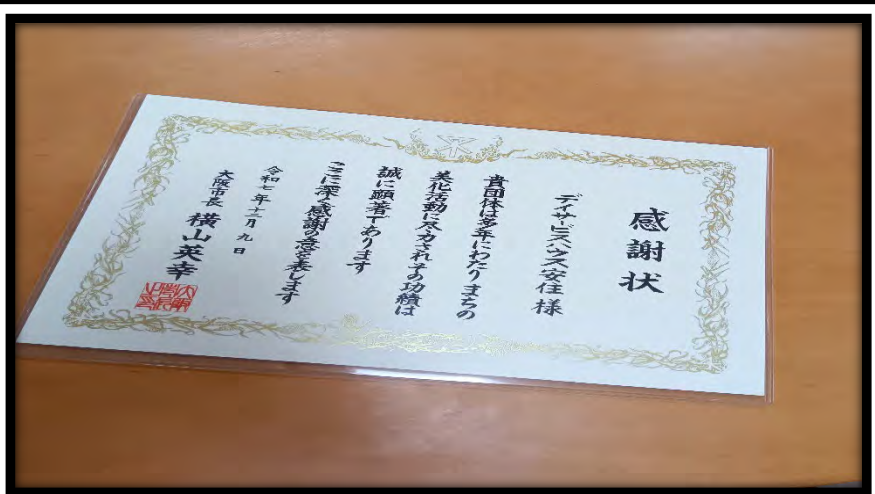 感謝状
デイサービスハウス安住様
貴団体は多年にわたりまちの
美化活動に尽力されその功績は
誠に顕著であります
ここに深く感謝の意を表します
令和七年十二月九日
大阪市長 横山英幸